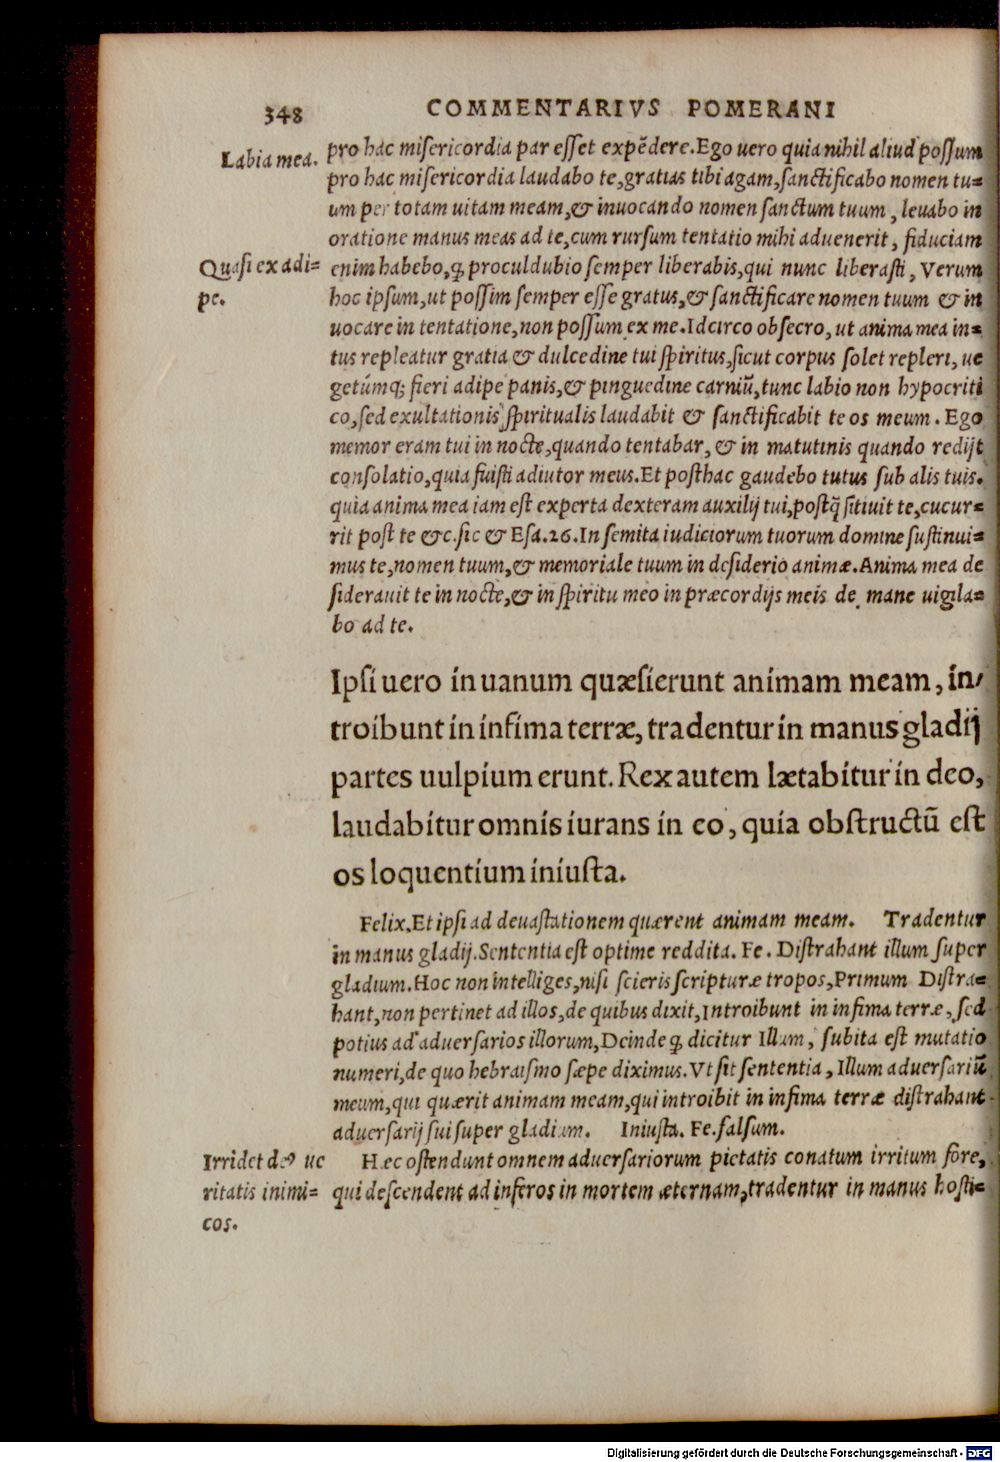 348 COMMENTARIVS POMERANI
Labia mea. pro hac misericordia par esset expẽdere. Ego uero quia nihil aliud possum
pro hac misericordia laudabo te, gratias tibi agam, sanctificabo nomen tu=
um per totam uitam meam, & inuocando nomen sanctum tuum, leuabo in
oratione manus meas ad te, cum rursum tentatio mihi aduenerit, fiduciam
Quasi ex adi= enim habebo, q̃ proculdubio semper liberabis, qui nunc liberasti, Verum
pe. hoc ipsum, ut possim semper esse gratus, & sanctificare nomen tuum & in
uocare in tentatione, non possum ex me. Idcirco obsecro, ut anima mea in=
tus repleatur gratia & dulcedine tui spiritus, sicut corpus solet repleri, ue
getúmq; fieri adipe panis, & pinguedine carniũ, tunc labio non hypocriti
co, sed exultationis spiritualis laudabit & sanctificabit te os meum. Ego
memor eram tui in nocte, quando tentabar, & in matutinis quando redijt
consolatio, quia fuisti adiutor meus. Et posthac gaudebo tutus sub alis tuis.
quia anima mea iam est experta dexteram auxilij tui, postq̃ sitiuit te, cucur=
rit post te &c. sic & Esa. 26. In semita iudiciorum tuorum domine sustinui=
mus te, nomen tuum, & memoriale tuum in desiderio animæ. Anima mea de
siderauit te in nocte, & in spiritu meo in præcordijs meis de mane uigila=
bo ad te.
Ipsi uero in uanum quæsierunt animam meam, in/
troibunt in infima terræ, tradentur in manus gladij
partes uulpium erunt. Rex autem lætabitur in deo,
laudabitur omnis iurans in eo, quia obstructũ est
os loquentium iniusta.
Felix. Et ipsi ad deuastationem quærent animam meam. Tradentur
in manus gladij. Sententia est optime reddita. Fe. Distrahant illum super
gladium. Hoc non intelliges, nisi scieris scripturæ tropos, Primum Distra=
hant, non pertinet ad illos, de quibus dixit, Introibunt in infima terræ, sed
potius ad aduersarios illorum, Deinde q̃ dicitur Illum, subita est mutatio
numeri, de quo hebraismo sæpe diximus. Vt sit sententia, Illum aduersariũ
meum, qui quærit animam meam, qui introibit in infima terræ distrahant
aduersarij sui super gladium. Iniusta. Fe. falsum.
Irridet deꝰ ue Hæc ostendunt omnem aduersariorum pietatis conatum irritum fore,
ritatis inimi= qui descendent ad inferos in mortem æternam, tradentur in manus hosti=
cos.
Digitalisierung gefördert durch die Deutsche Forschungsgemeinschaft - DFG